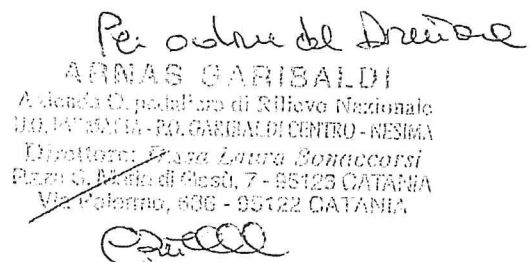 Per ordine del Direttore
ARNAS GARIBALDI
Azienda Ospedaliera di Rilievo Nazionale
U.O. FARMACIA - P.O. GARIBALDI CENTRO - NESIMA
Direttore: Dr.ssa Laura Bonaccorsi
P.zza S. Maria di Gesù, 7 - 95123 CATANIA
Via Palermo, 636 - 95122 CATANIA